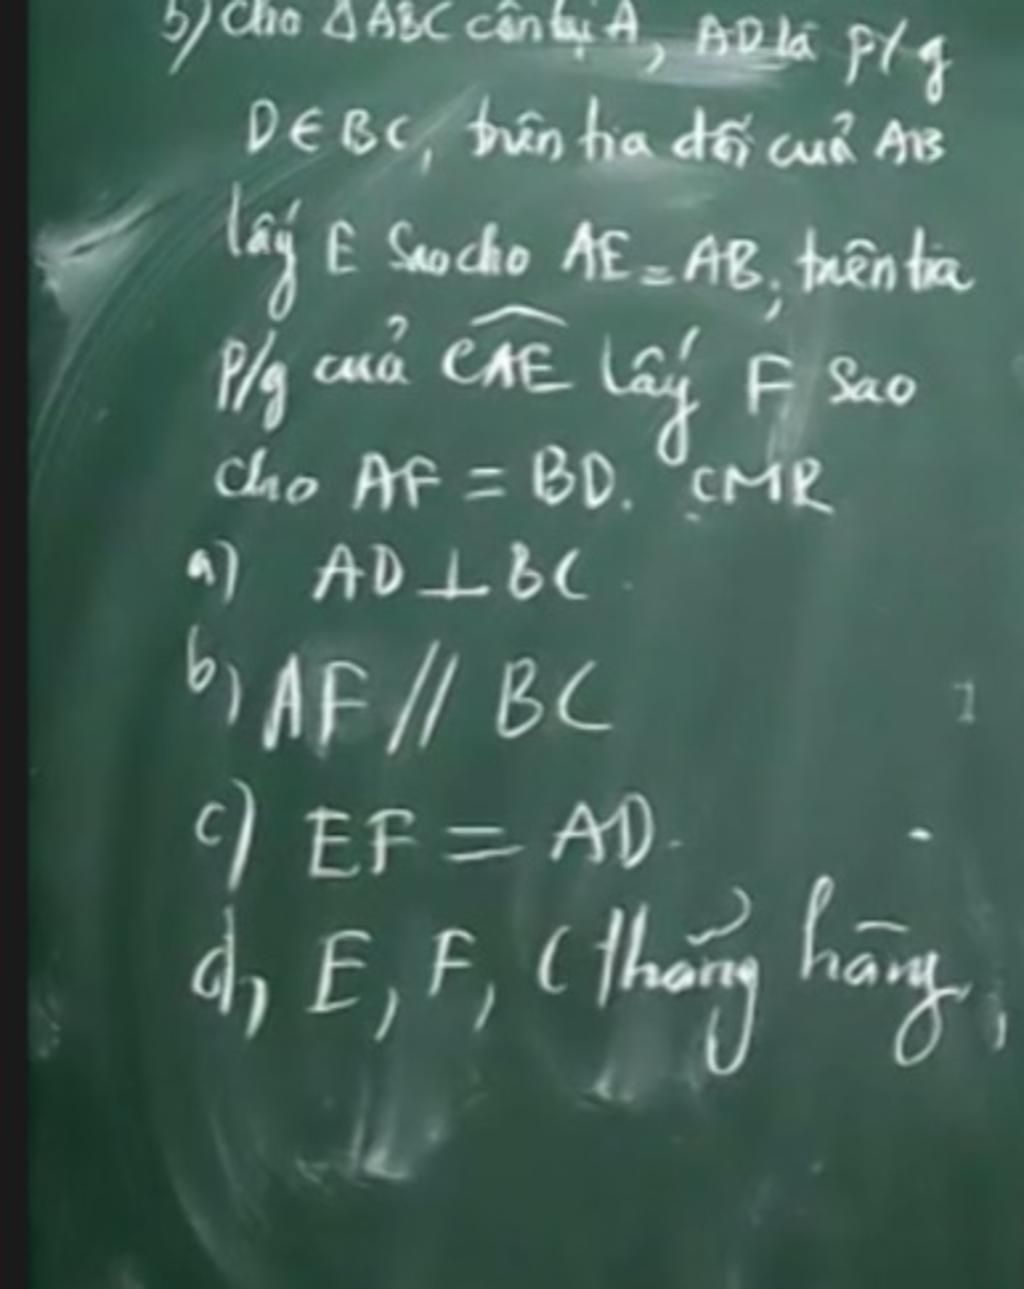 5) Cho ΔABC cân tại A, AD là p/g
D∈BC, trên tia đối của AB
lấy E sao cho AE = AB, trên tia
p/g của \widehat{CAE} lấy F sao
cho AF = BD. CMR
a) AD ⊥ BC.
b) AF // BC
c) EF = AD.
d, E, F, C thẳng hàng,